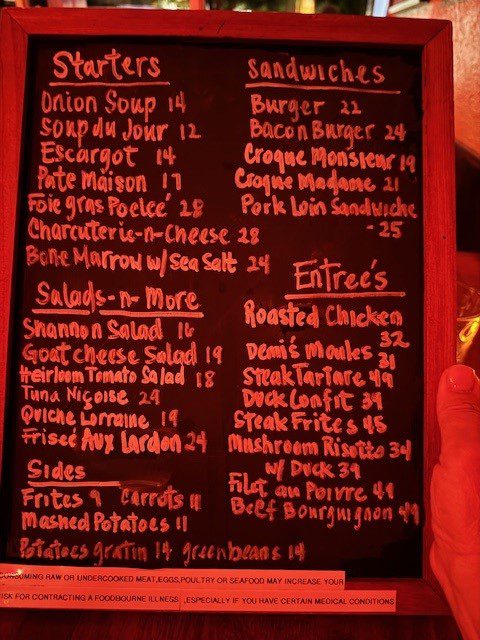 Starters
Onion Soup 14
Soup du Jour 12
Escargot 14
Pate Maison 17
Foie gras Poeleé 28
Charcuterie-n-Cheese 28
Bone Marrow w/ Sea Salt 24
Salads-n-More
Shannon Salad 16
Goat cheese Salad 19
Heirloom Tomato Salad 18
Tuna Niçoise 29
Quiche Lorraine 19
Friseé Aux Lardon 24
Sides
Frites 9 Carrots 11
Mashed Potatoes 11
Potatoes gratin 14 greenbeans 14
Sandwiches
Burger 22
Bacon Burger 24
Croque Monsieur 19
Croque Madame 21
Pork Loin Sandwiche
- 25
Entreé's
Roasted Chicken
32
Demi's Moules 31
Steak Tartare 49
Duck Confit 39
Steak Frites 45
Mushroom Risotto 34
w/ Duck 39
Filet au Poivre 49
Beef Bourguignon 49
CONSUMING RAW OR UNDERCOOKED MEAT,EGGS,POULTRY OR SEAFOOD MAY INCREASE YOUR
RISK FOR CONTRACTING A FOODBOURNE ILLNESS ,ESPECIALLY IF YOU HAVE CERTAIN MEDICAL CONDITIONS